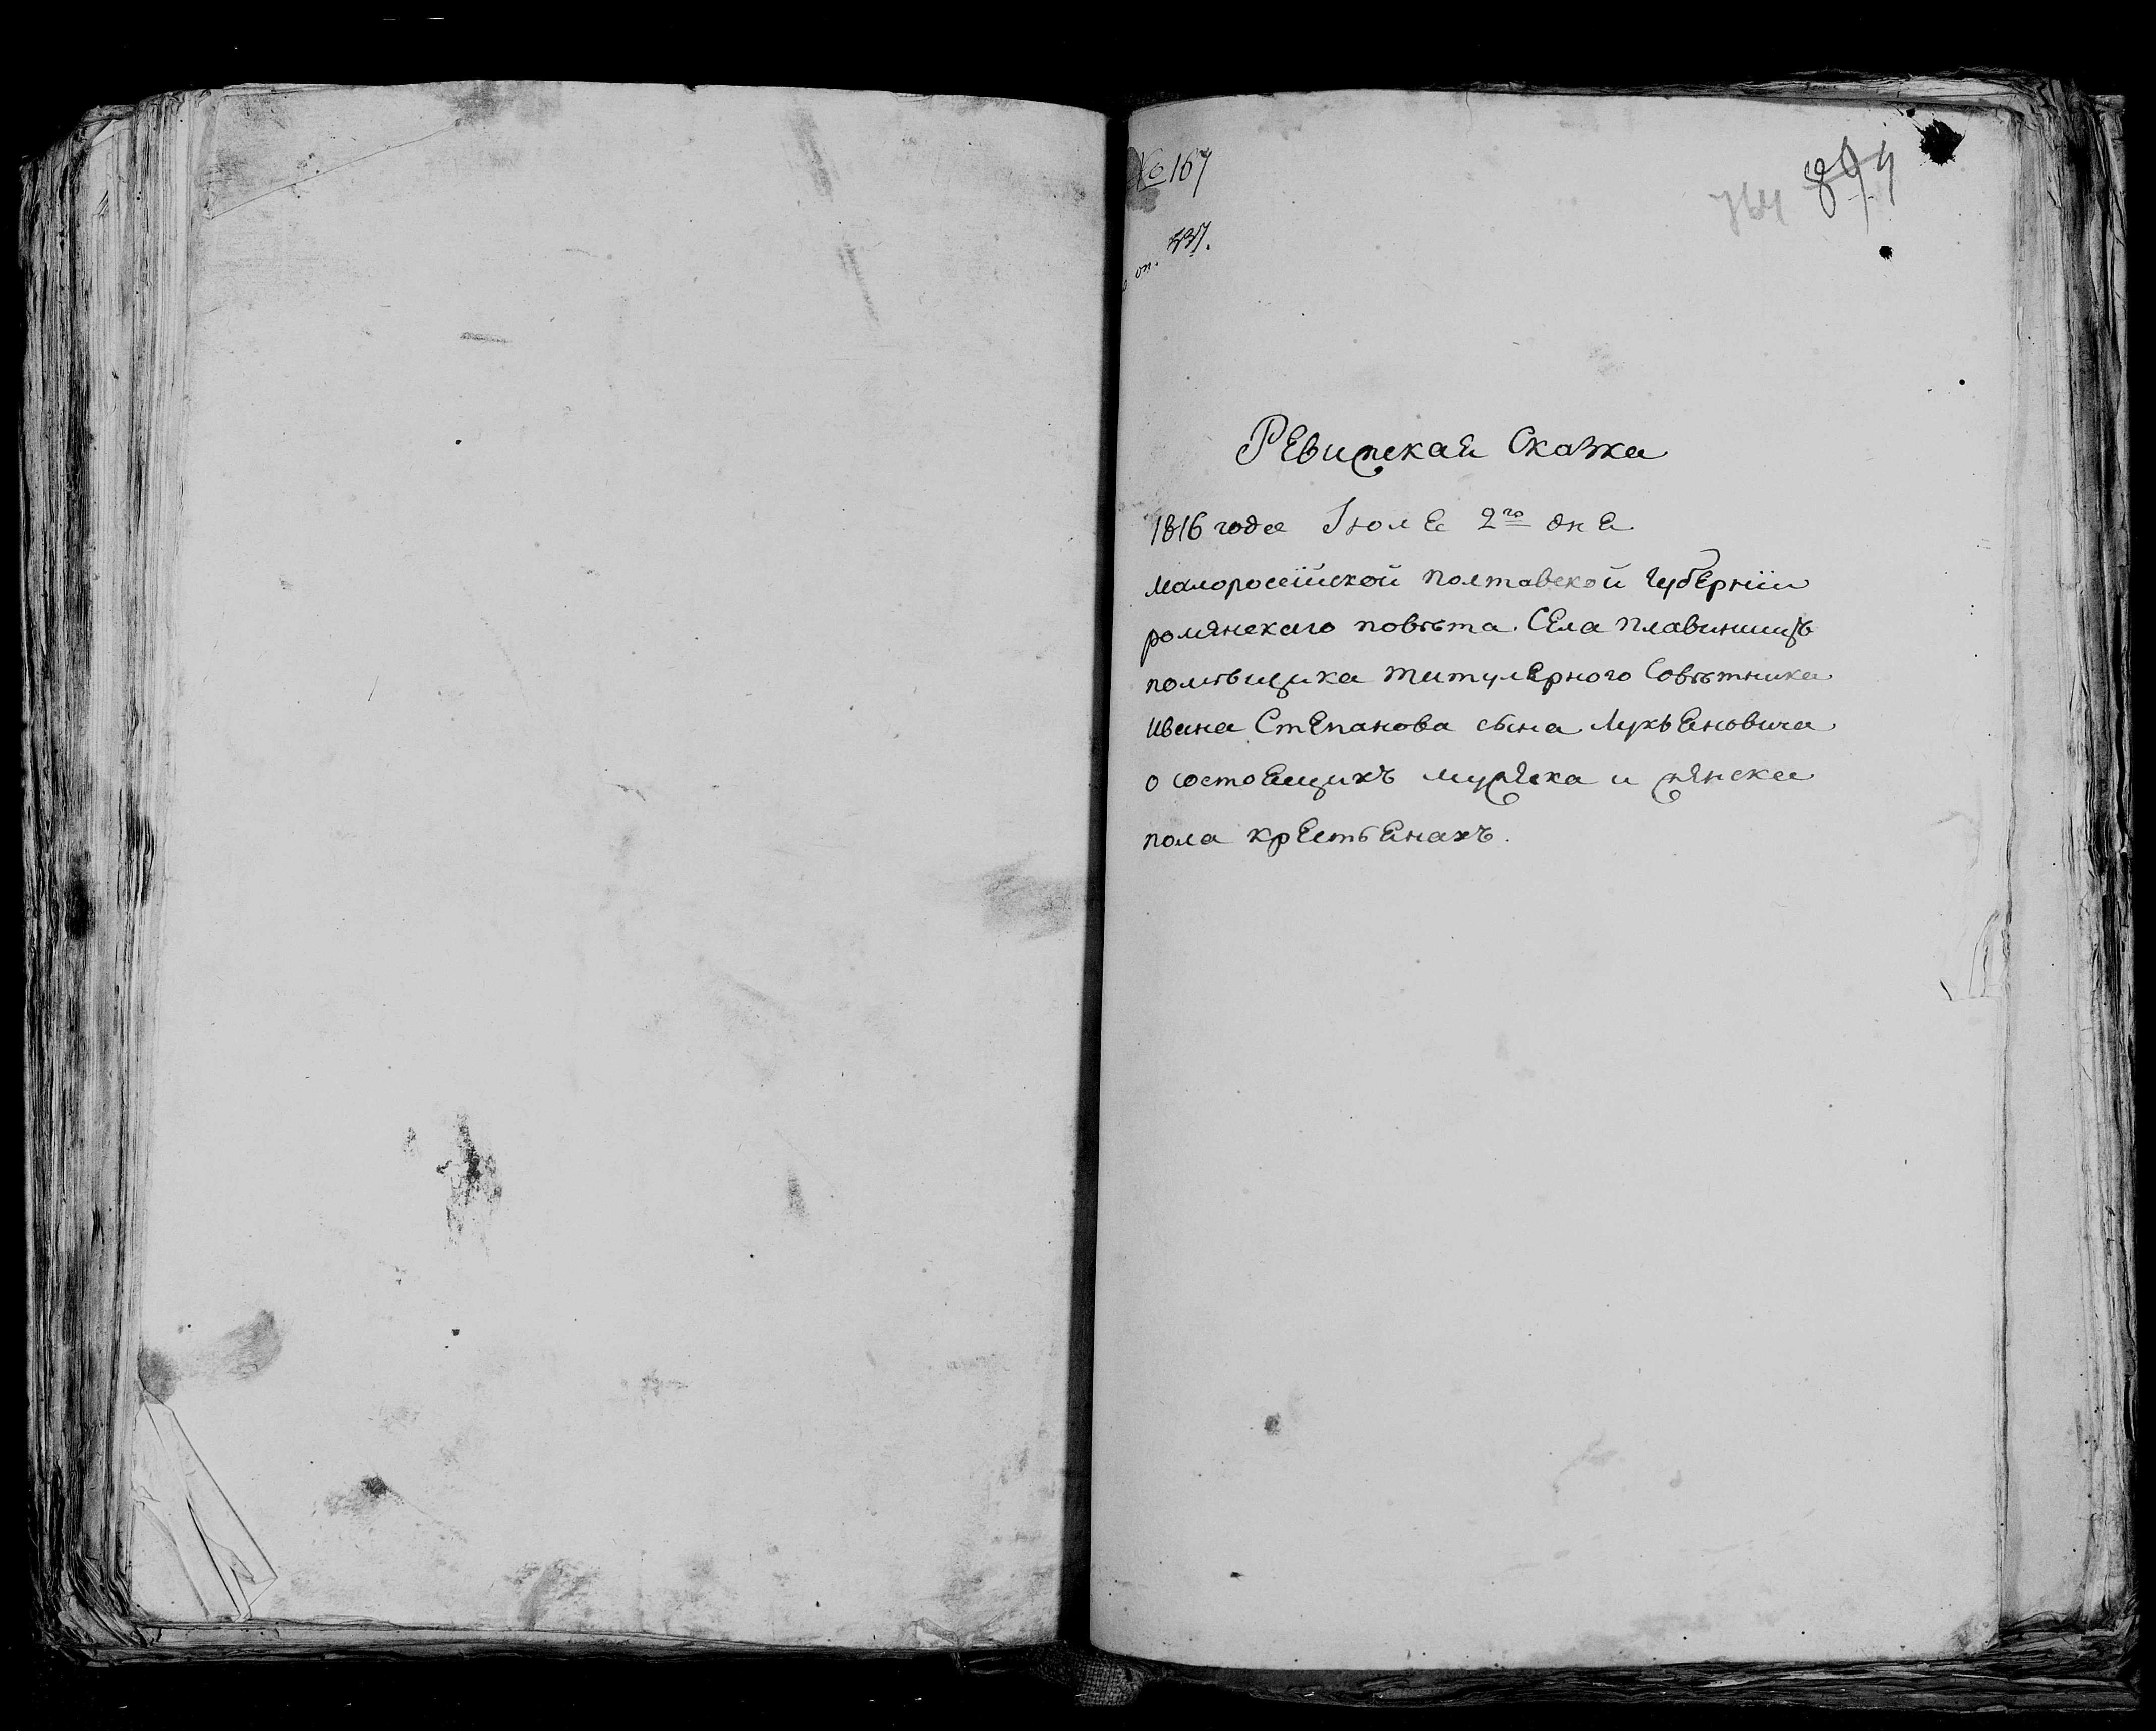 № 167
оп. 337.
764 894
Ревизская Сказка
1816 года Іюля 2го дня
малороссійской полтавской губерніи
роменскаго повѣта села плавинищъ
помѣщика титулярного Совѣтника
ивана Степанова сына Лукьяновича
о состоящихъ мужеска и женска
пола крестьянахъ.